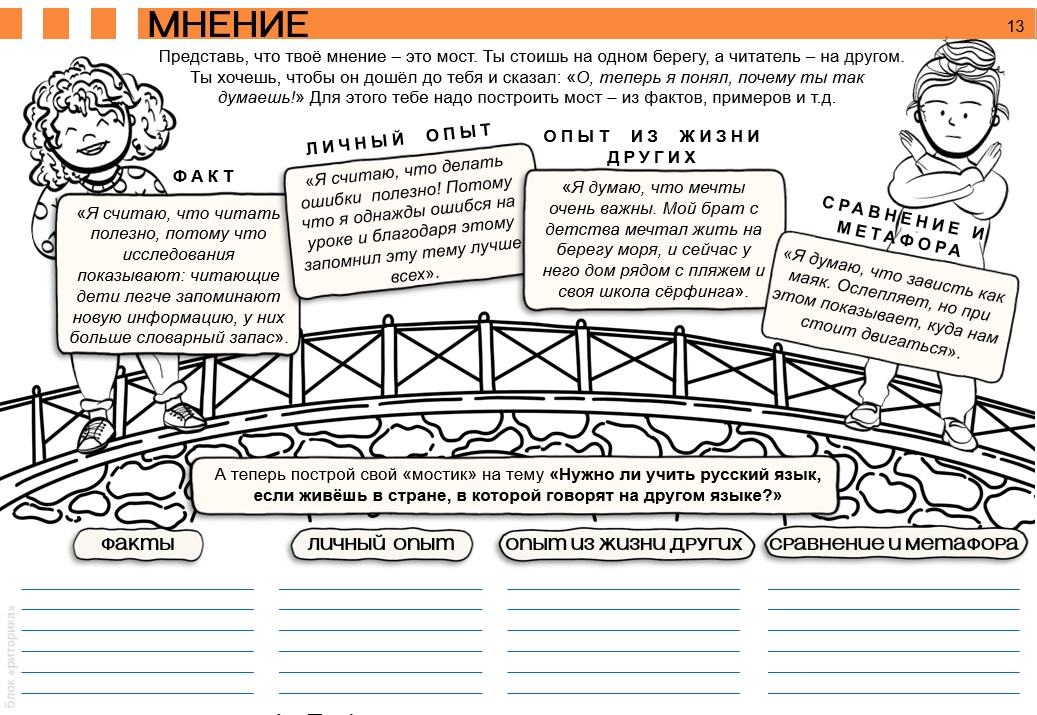 МНЕНИЕ
13
Представь, что твоё мнение – это мост. Ты стоишь на одном берегу, а читатель – на другом.
Ты хочешь, чтобы он дошёл до тебя и сказал: «О, теперь я понял, почему ты так
думаешь!» Для этого тебе надо построить мост – из фактов, примеров и т.д.
ФАКТ
«Я считаю, что читать
полезно, потому что
исследования
показывают: читающие
дети легче запоминают
новую информацию, у них
больше словарный запас».
ЛИЧНЫЙ ОПЫТ
«Я считаю, что делать
ошибки полезно! Потому
что я однажды ошибся на
уроке и благодаря этому
запомнил эту тему лучше
всех».
ОПЫТ ИЗ ЖИЗНИ
ДРУГИХ
«Я думаю, что мечты
очень важны. Мой брат с
детства мечтал жить на
берегу моря, и сейчас у
него дом рядом с пляжем и
своя школа сёрфинга».
СРАВНЕНИЕ И
МЕТАФОРА
«Я думаю, что зависть как
маяк. Ослепляет, но при
этом показывает, куда нам
стоит двигаться».
А теперь построй свой «мостик» на тему «Нужно ли учить русский язык,
если живёшь в стране, в которой говорят на другом языке?»
факты
личный опыт
опыт из жизни других
сравнение и метафора
блок «риторика»